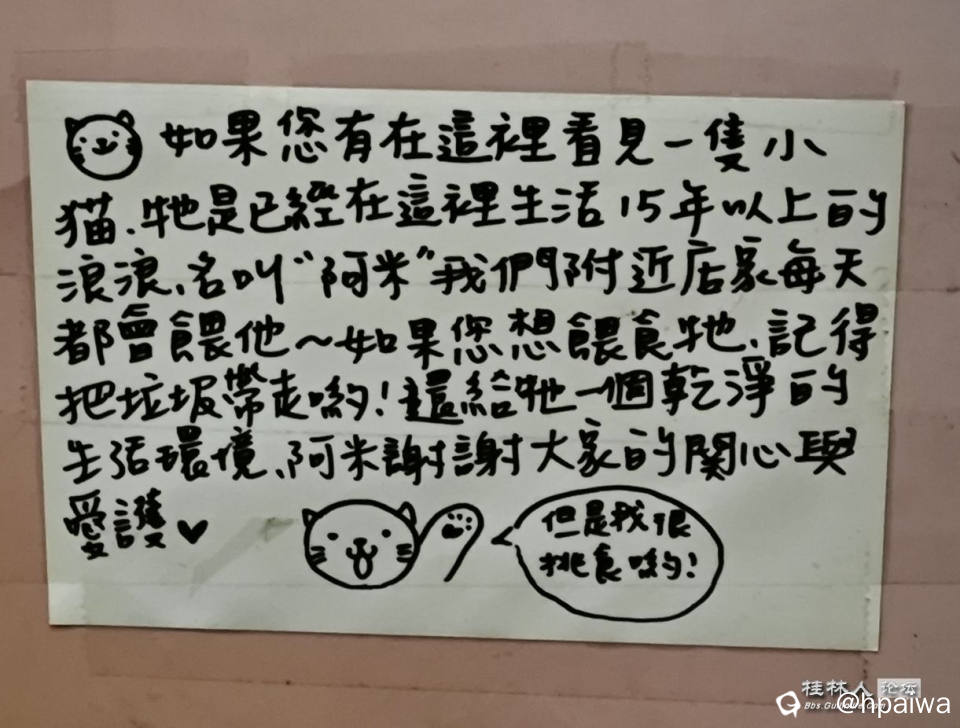 如果您有在這裡看見一隻小
猫、牠是已經在這裡生活15年以上的
浪浪、名叫“阿米”我們附近店家每天
都會餵他～如果您想餵食牠、記得
把垃圾帶走喲!還給牠一個乾淨的
生活環境、阿米謝謝大家的関心與
愛護♥
但是我很
挑食喲!
桂林人论坛
@hpaiwa